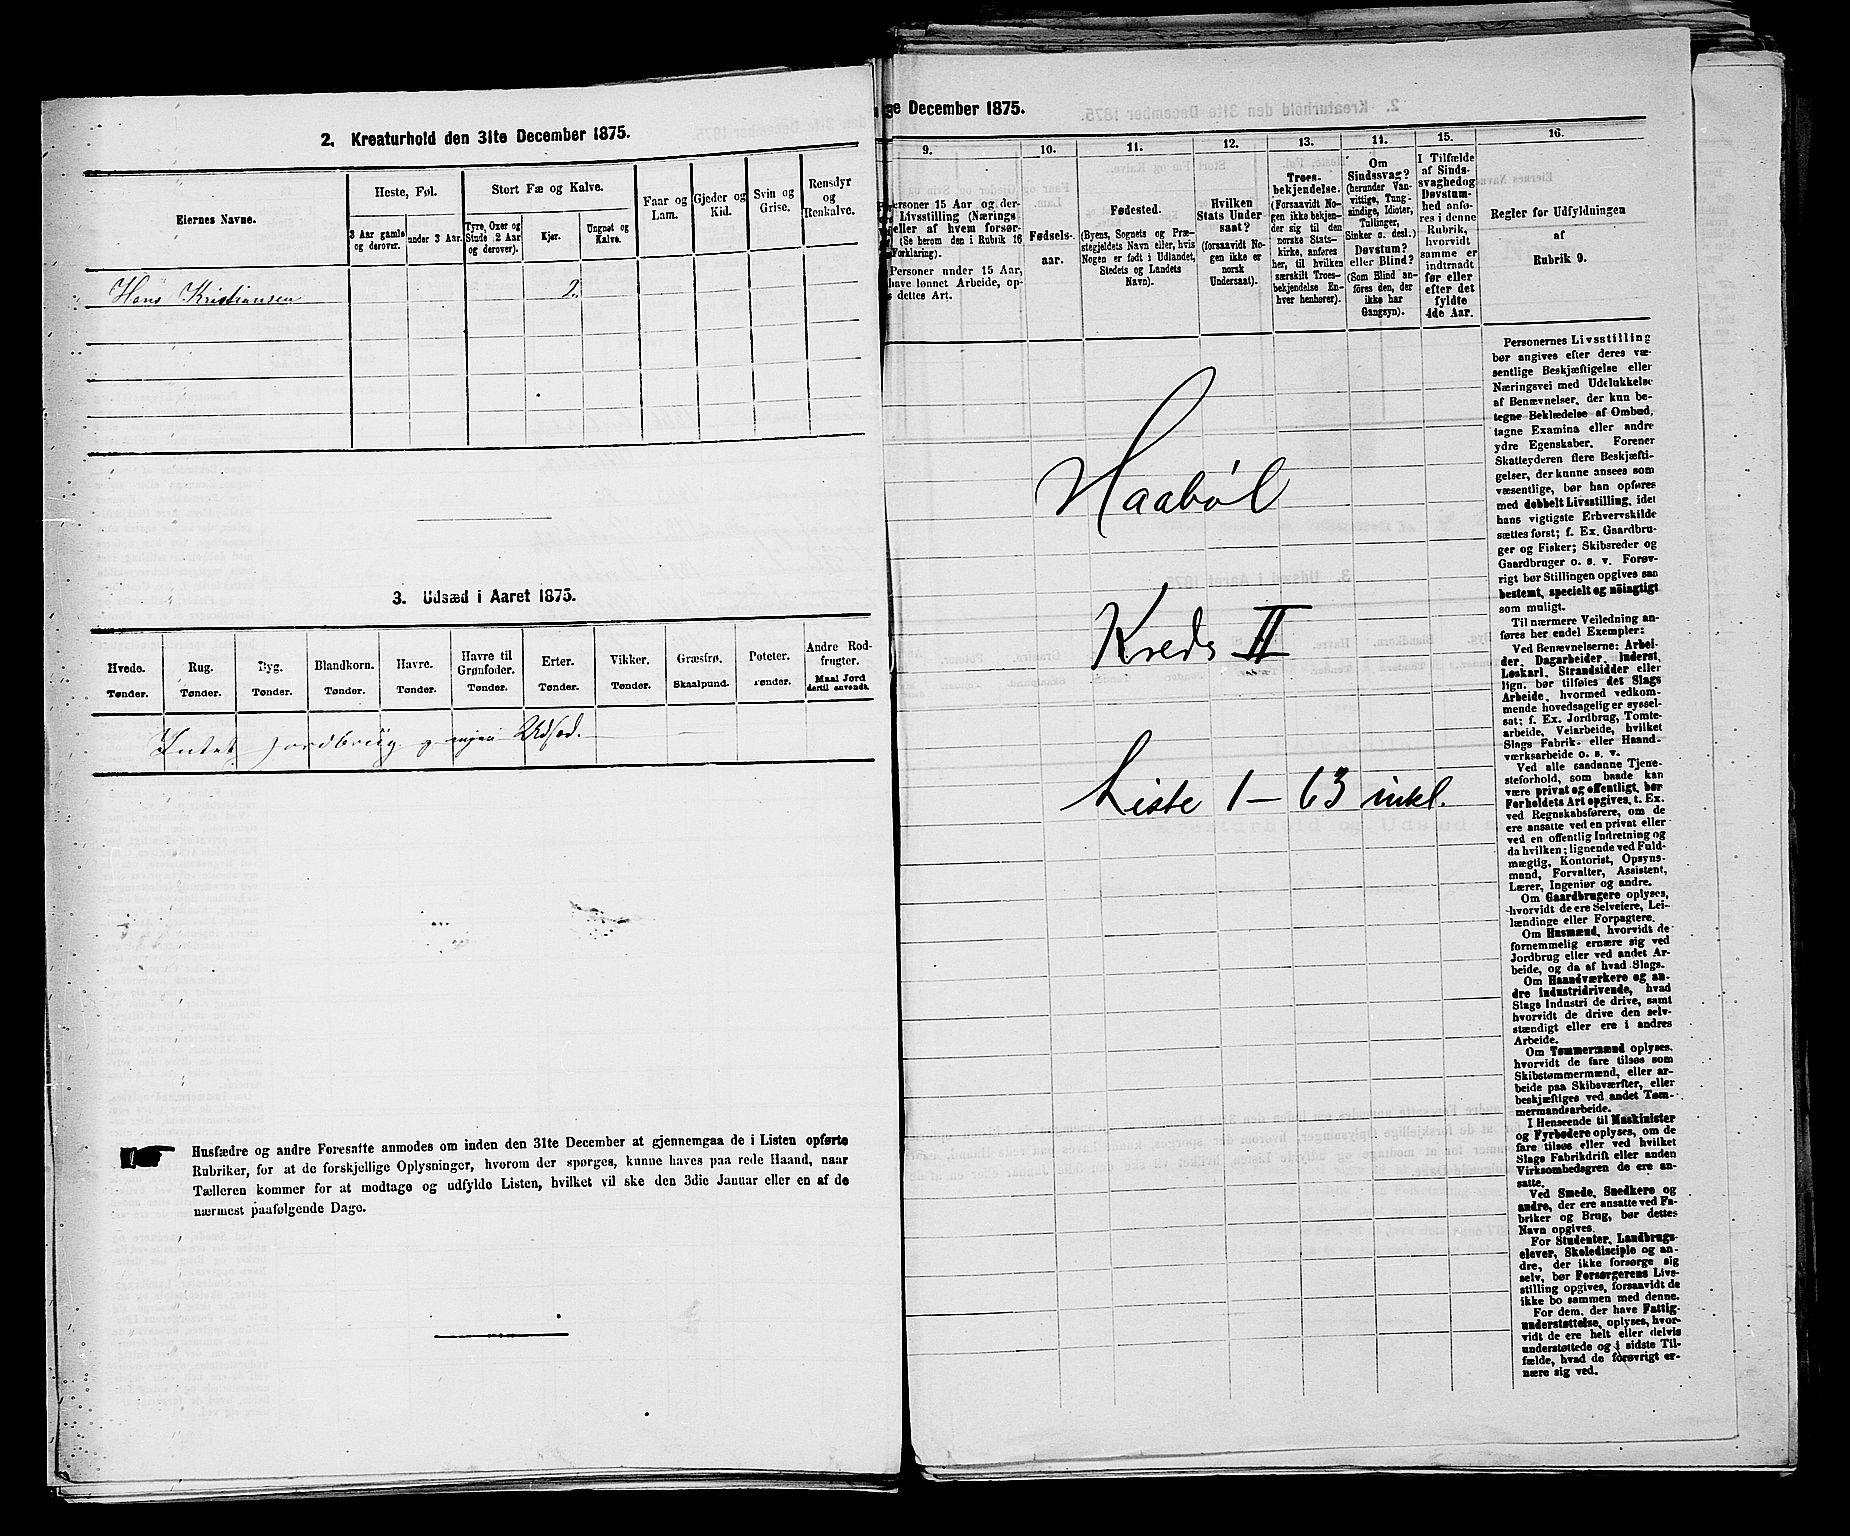 2. Kreaturhold den 31te December 1875.
Eiernes Navne.
Heste, Føl.
Stort Fæ og Kalve.
Faar og Lam.
Gjeder og Kid.
Svin og Grise.
Rensdyr og Renkalve.
3 Aar gamle og derover.
under 3 Aar.
Tyre, Oxer og Stude 2 Aar og derover).
Kjør.
Ungnøt og Kalve.
Hans Kristiansen 2
3. Udsæd i Aaret 1875.
Hvede. Tønder.
Rug. Tønder.
Byg. Tønder.
Blandkorn. Tønder.
Havre. Tønder.
Havre til Grønfoder. Tønder.
Erter. Tønder.
Vikker. Tønder.
Græsfrø. Skaalpund.
Poteter. Tønder.
Andre Rodfrugter. Maal Jord dertil anvendt.
Intet Jordbrug og ingen Udsæd.
Husfædre og andre Foresatte anmodes om inden den 31te December at gjennemgaa de i Listen opførte
Rubriker, for at de forskjellige Oplysninger, hvorom der spørges, kunne haves paa rede Haand, naar
Tælleren kommer for at modtage og udfylde Listen, hvilket vil ske den 3die Januar eller en af de
nærmest paafølgende Dage.
ge December 1875.
9.
10.
11.
12.
13.
14.
15.
16.
ersoner 15 Aar og der-
Livsstilling (Nærings
eller af hvem forsør-
(Se herom den i Rubrik 16
Forklaring).
Personer under 15 Aar,
have lønnet Arbeide, op-
s dettes Art.
Fødsels-
aar.
Fødested.
(Byens, Sognets og Præ-
stegjeldets Navn eller, hvis
Nogen er født i Udlandet,
Stedets og Landets
Navn).
Hvilken
Stats Under-
saat?
(forsaavidt No-
gen ikke er
norsk
Undersaat).
Troes-
bekjendelse.
(Forsaavidt No-
gen ikke bekjen-
der sig til den
norske Stats-
kirke, anføres
her, til hvilken
særskilt Troes-
bekjendelse En-
hver henhører).
Om
Sindssvag?
(herunder Van-
vittige, Tung-
sindige, Idioter,
Tullinger,
Sinker o. desl.)
Døvstum?
eller Blind?
(Som Blind an-
føres den, der
ikke har
Gangsyn).
I Tilfælde
af Sinds-
svaghedog
Døvstum-
hed anfø-
res i denne
Rubrik,
hvorvidt
samme er
indtrnadt
før eller
efter det
fyldte
4de Aar.
Regler for Udfyldningen
af
Rubrik 9.
Personernes Livsstilling
bør angives efter deres væ-
sentlige Beskjæftigelse eller
Næringsvei med Udelukkelse
af Benævnelser, der kun be-
tegne Beklædelse af Ombud,
tagne Examina eller andre
ydre Egenskaber. Forener
Skatteyderen flere Beskjæfti-
gelser, der kunne ansees som
væsentlige, bør han opføres
med dobbelt Livsstilling, idet
hans vigtigste Erhvervskilde
sættes først; f. Ex. Gaardbru-
ger og Fisker; Skibsreder og
Gaardbruger o. s. v. Forøv-
rigt bør Stillingen opgives saa
bestemt, specielt og nøiagtigt
som muligt.
Til nærmere Veiledning an-
føres her endel Exempler:
Ved Benævnelserne: Arbei-
der, Dagarbeider, Inderst,
Løskarl, Strandsidder eller
lign. bør tilføies det Slags
Arbeide, hvormed vedkom-
mende hovedsagelig er syssel-
sat; f. Ex. Jordbrug, Tomte-
arbeide, Veiarbeide, hvilket
Slags Fabrik- eller Haand-
værksarbeide o. s. v.
Ved alle saadanne Tjene-
steforhold, som baade kan
være privat og offentligt, bør
Forholdets Art opgives, t. Ex.
ved Regnskabsførere, om de
ere ansatte ved en privat eller
ved en offentlig Indretning og
da hvilken; lignende ved Fuld-
mægtig, Kontorist, Opsyns-
mand, Forvalter, Assistent,
Lærer, Ingeniør og andre.
Om Gaardbrugere oplyses,
hvorvidt de ere Selveiere, Lei-
lændinge eller Forpagtere.
Om Husmænd, hvorvidt de
fornemmelig ernære sig ved
Jordbrug eller ved andet Ar-
beide, og da af hvad Slags.
Om Haandværkere og an-
dre Industridrivende, hvad
Slags Industri de drive, samt
hvorvidt de drive den selv-
stændigt eller ere i andres
Arbeide.
Om Tømmermænd oplyses,
hvorvidt de fare tilsøs som
Skibstømmermænd, eller ar-
beide paa Skibsværfter, eller
beskjæftiges ved andet Tøm-
mermandsarbeide.
I Henseende til Maskinister
og Fyrbødere oplyses, om de
fare tilsøs eller ved hvilket
Slags Fabrikdrift eller anden
Virksombedsgren de ere an-
satte.
Ved Smede, Snedkere og
andre, der ere ansatte ved Fa-
briker og Brug, bør dettes
Navn opgives.
For Studenter, Landbrugs-
elever, Skoledisciple og an-
dre, der ikke forsørge sig
selv, bør Forsørgerens Livs-
stilling opgives, forsaavidt de
ikke bo sammen med denne.
For dem, der have Fattig-
understøttelse, oplyses, hvor-
vidt de ere helt eller delvis
understøttede og i sidste Til-
fælde, hvad de forøvrigt er-
nære sig ved.
Haabøl
Kreds II
Liste 1 – 63 inkl.